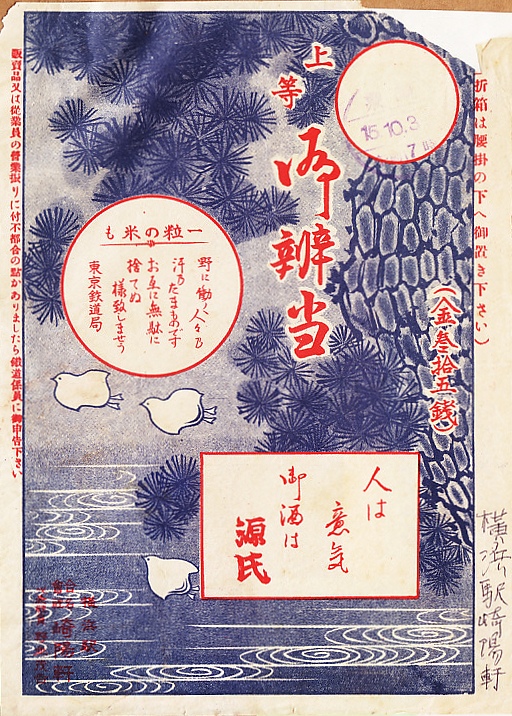 (折箱は腰掛の下へ御置き下さい)
15.10.3
上等
御辨当
(金叁拾五銭)
一粒の米も
野に働く人々の
汗のたまものです
お互に無駄に
捨てぬ
様致しませう
東京鉄道局
人は
意気
御酒は
源氏
販賣品又は従業員の営業振りに付不都合の點がありましたら鐵道係員に御申告下さい
横浜駅
崎陽軒
横浜駅崎陽軒